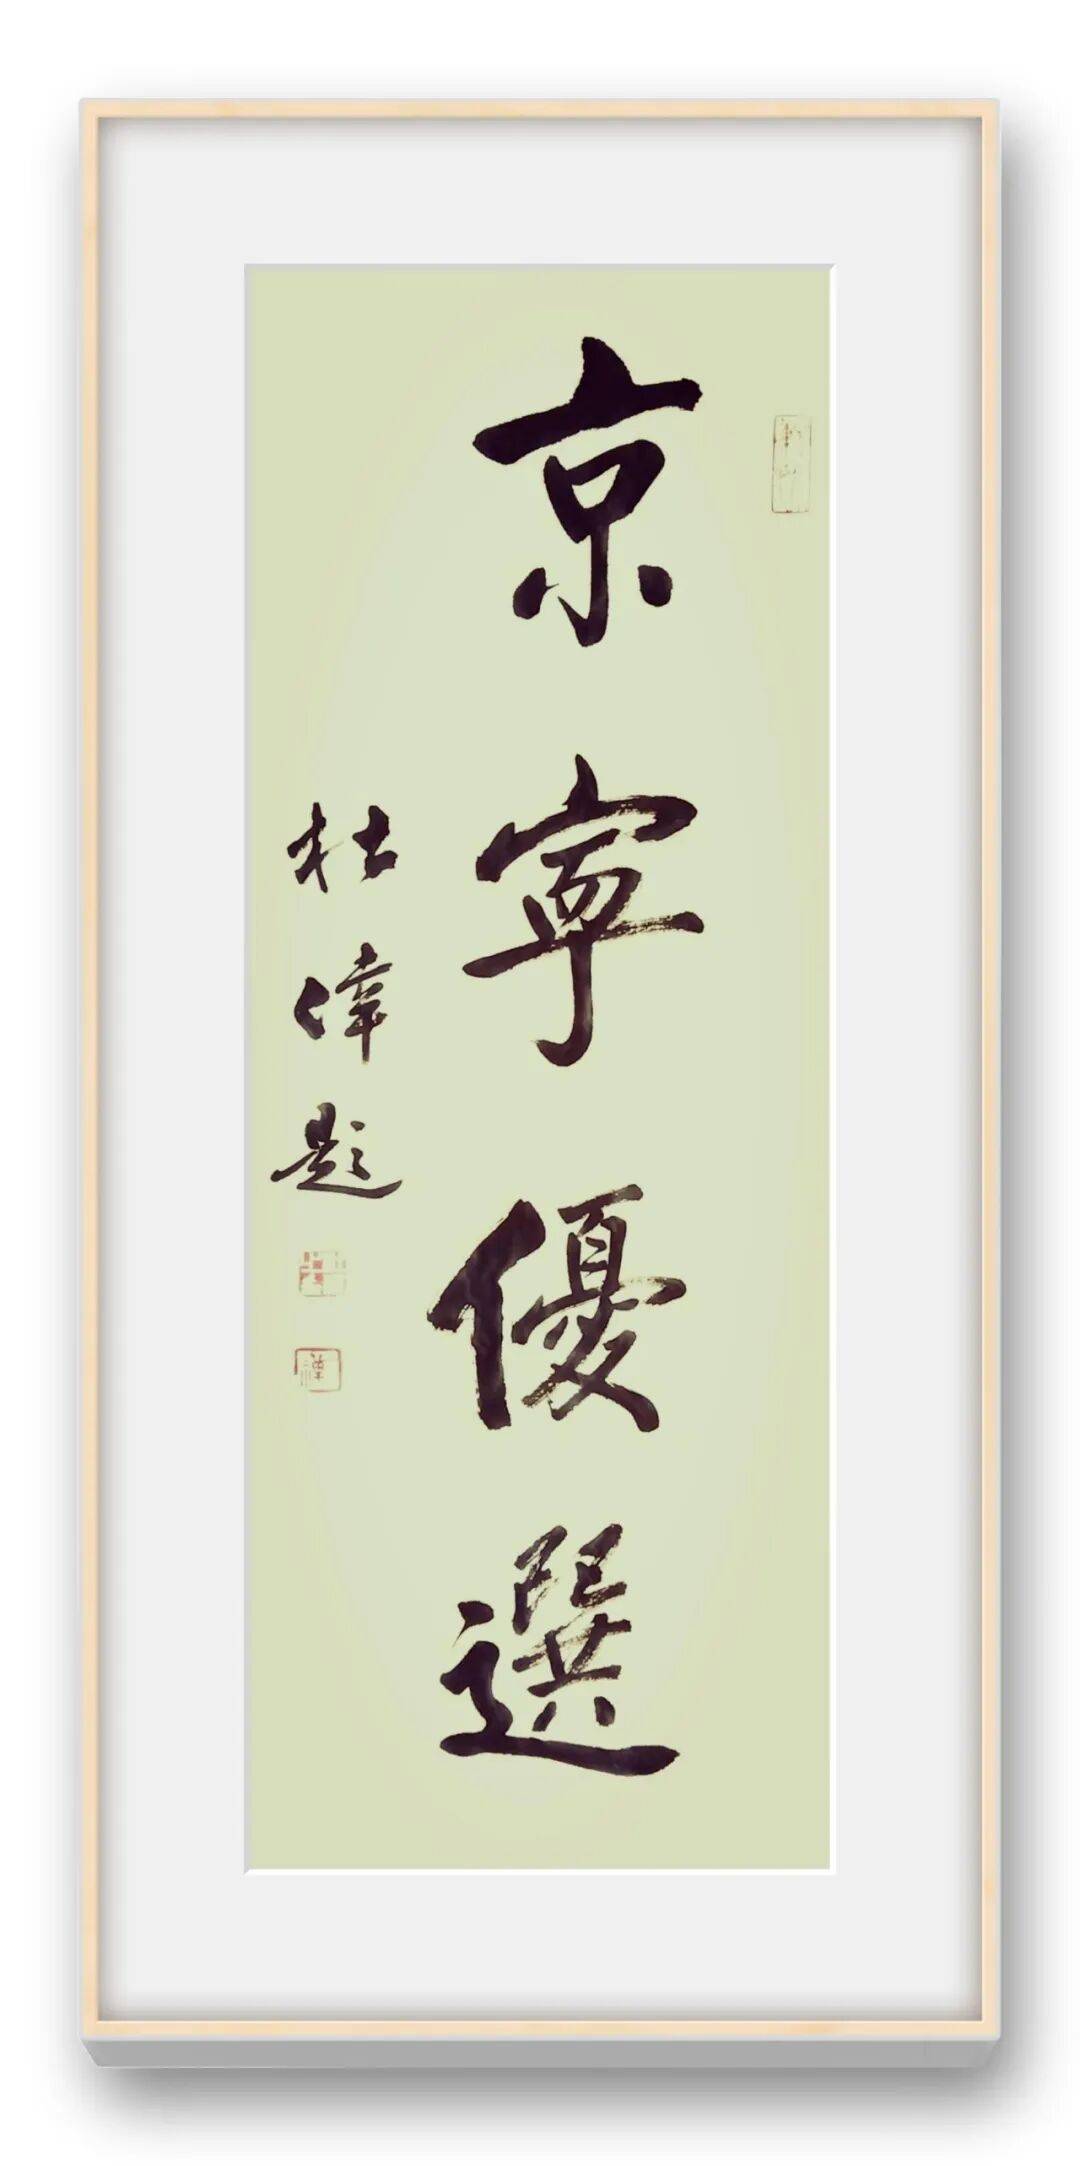 京寧優選
杜偉題